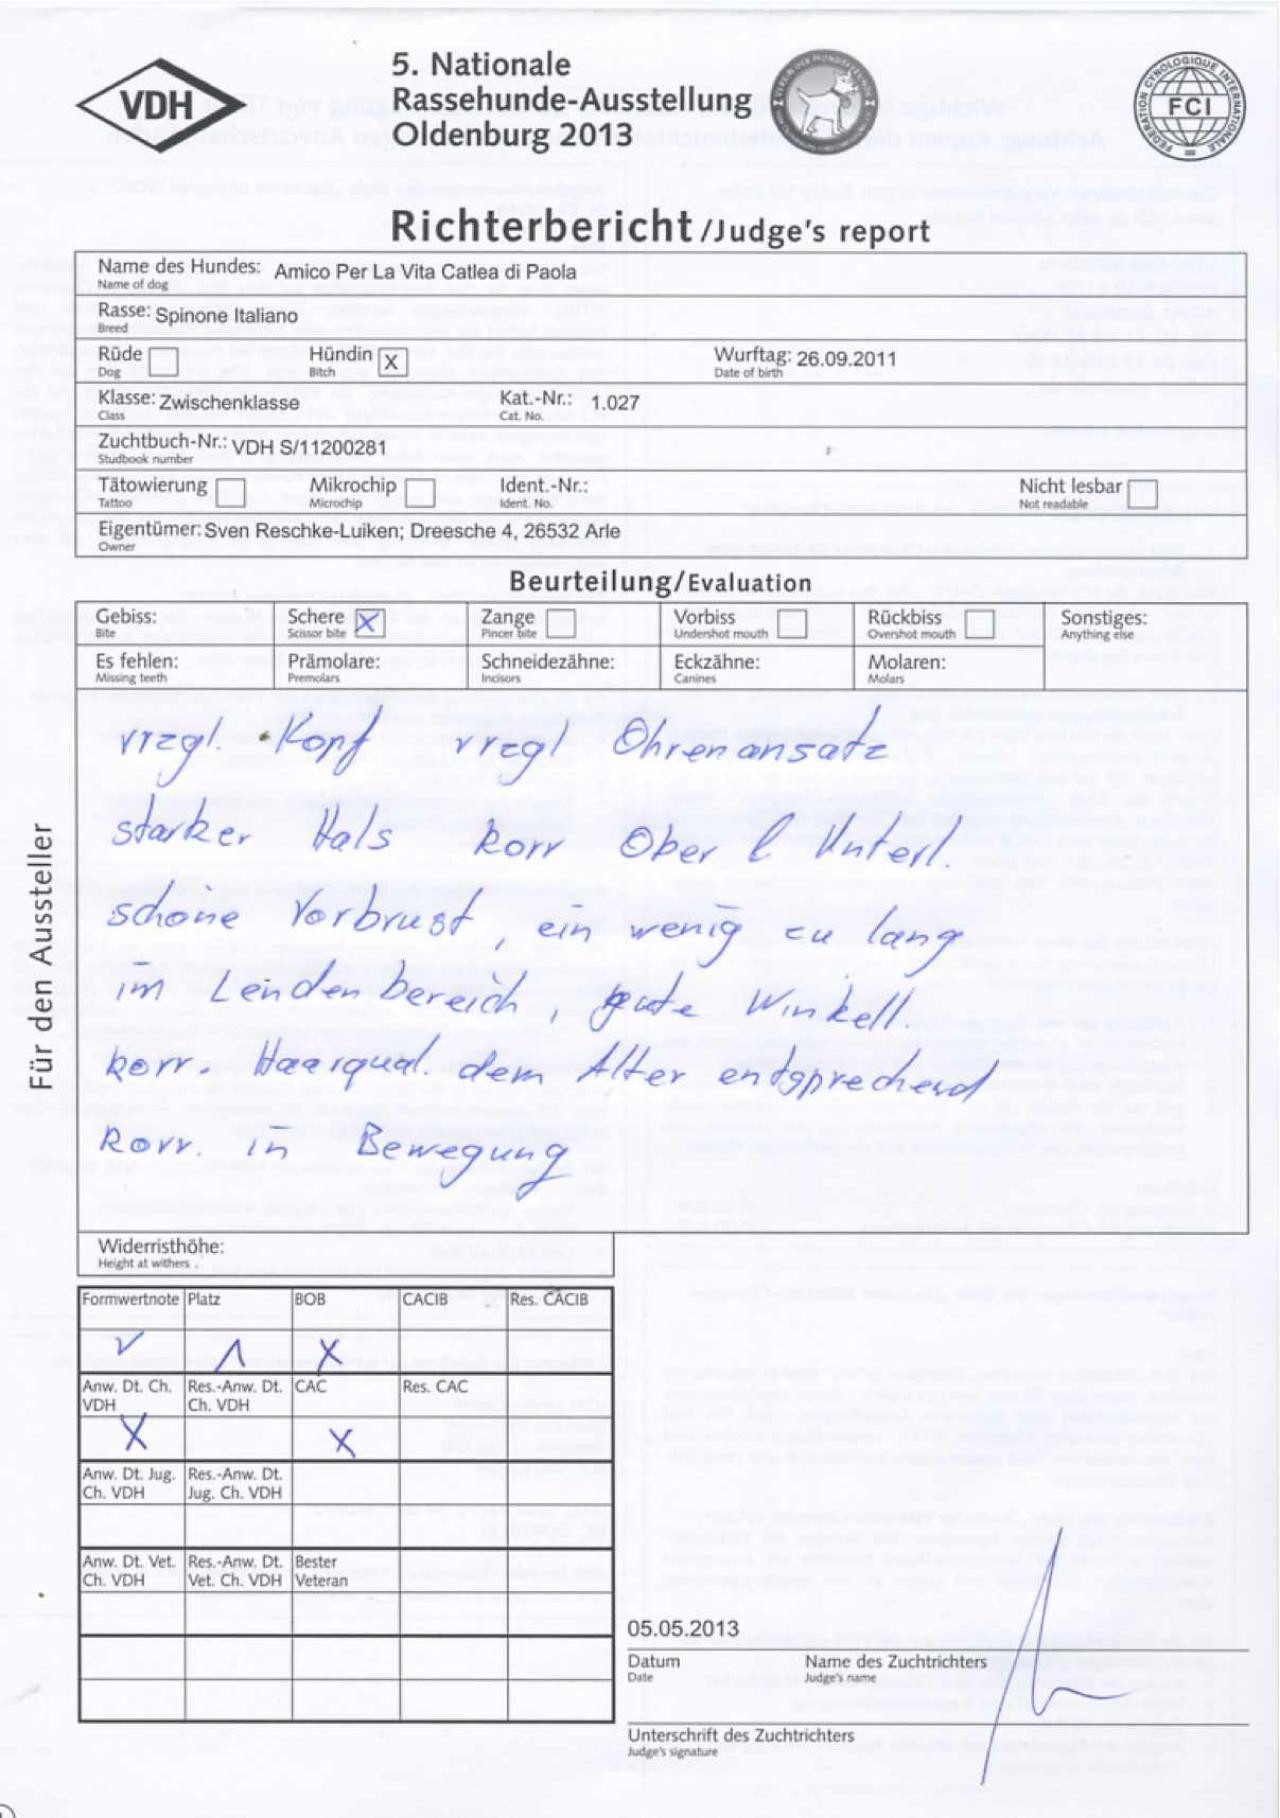 VDH
5. Nationale
Rassehunde-Ausstellung
Oldenburg 2013
FEDERATION CYNOLOGIQUE INTERNATIONALE
FCI
Richterbericht/Judge's report
Name des Hundes: Amico Per La Vita Catlea di Paola
Name of dog
Rasse: Spinone Italiano
Breed
Rüde Hündin X Wurftag: 26.09.2011
Dog Bitch Date of birth
Klasse: Zwischenklasse Kat.-Nr.: 1.027
Class Cat. No.
Zuchtbuch-Nr.: VDH S/11200281
Studbook number
Tätowierung Mikrochip Ident.-Nr.: Nicht lesbar
Tattoo Microchip Ident. No. Not readable
Eigentümer: Sven Reschke-Luiken; Dreesche 4, 26532 Arle
Owner
Beurteilung/Evaluation
Gebiss: Schere X Zange Vorbiss Rückbiss Sonstiges:
Bite Scissor bite Pincer bite Undershot mouth Overshot mouth Anything else
Es fehlen: Prämolare: Schneidezähne: Eckzähne: Molaren:
Missing teeth Premolars Incisors Canines Molars
Für den Aussteller
vrzgl. Kopf vrzgl Ohrenansatz
starker Hals korr Ober l Unterl.
schöne Vorbrust, ein wenig zu lang
im Lendenbereich, gute Winkell.
korr. Haarqual. dem Alter entsprechend
Korr. in Bewegung
Widerristhöhe:
Height at withers
Formwertnote Platz BOB CACIB Res. CACIB
V 1 X
Anw. Dt. Ch. Res.-Anw. Dt. CAC Res. CAC
VDH Ch. VDH
X X
Anw. Dt. Jug. Res.-Anw. Dt.
Ch. VDH Jug. Ch. VDH
Anw. Dt. Vet. Res.-Anw. Dt. Bester
Ch. VDH Vet. Ch. VDH Veteran
05.05.2013
Datum Name des Zuchtrichters
Date Judge's name
Unterschrift des Zuchtrichters
Judge's signature